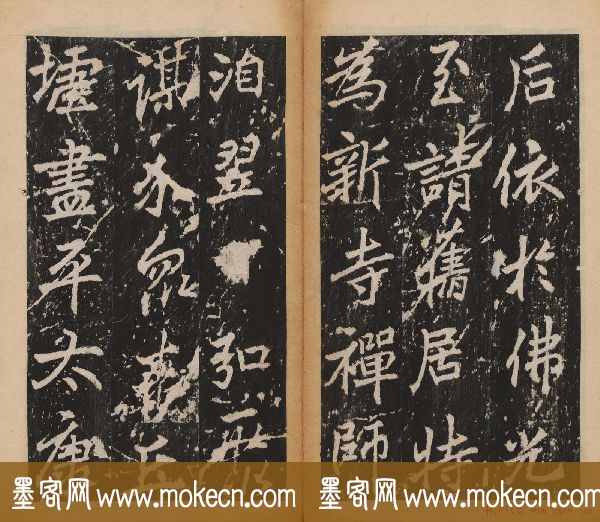 后依於佛光
至請舊居特
為新寺禪師
洎翌弘
謀介眾表丘
墟盡平太康
墨客网 www.mokecn.com
墨客网 www.mokecn.com